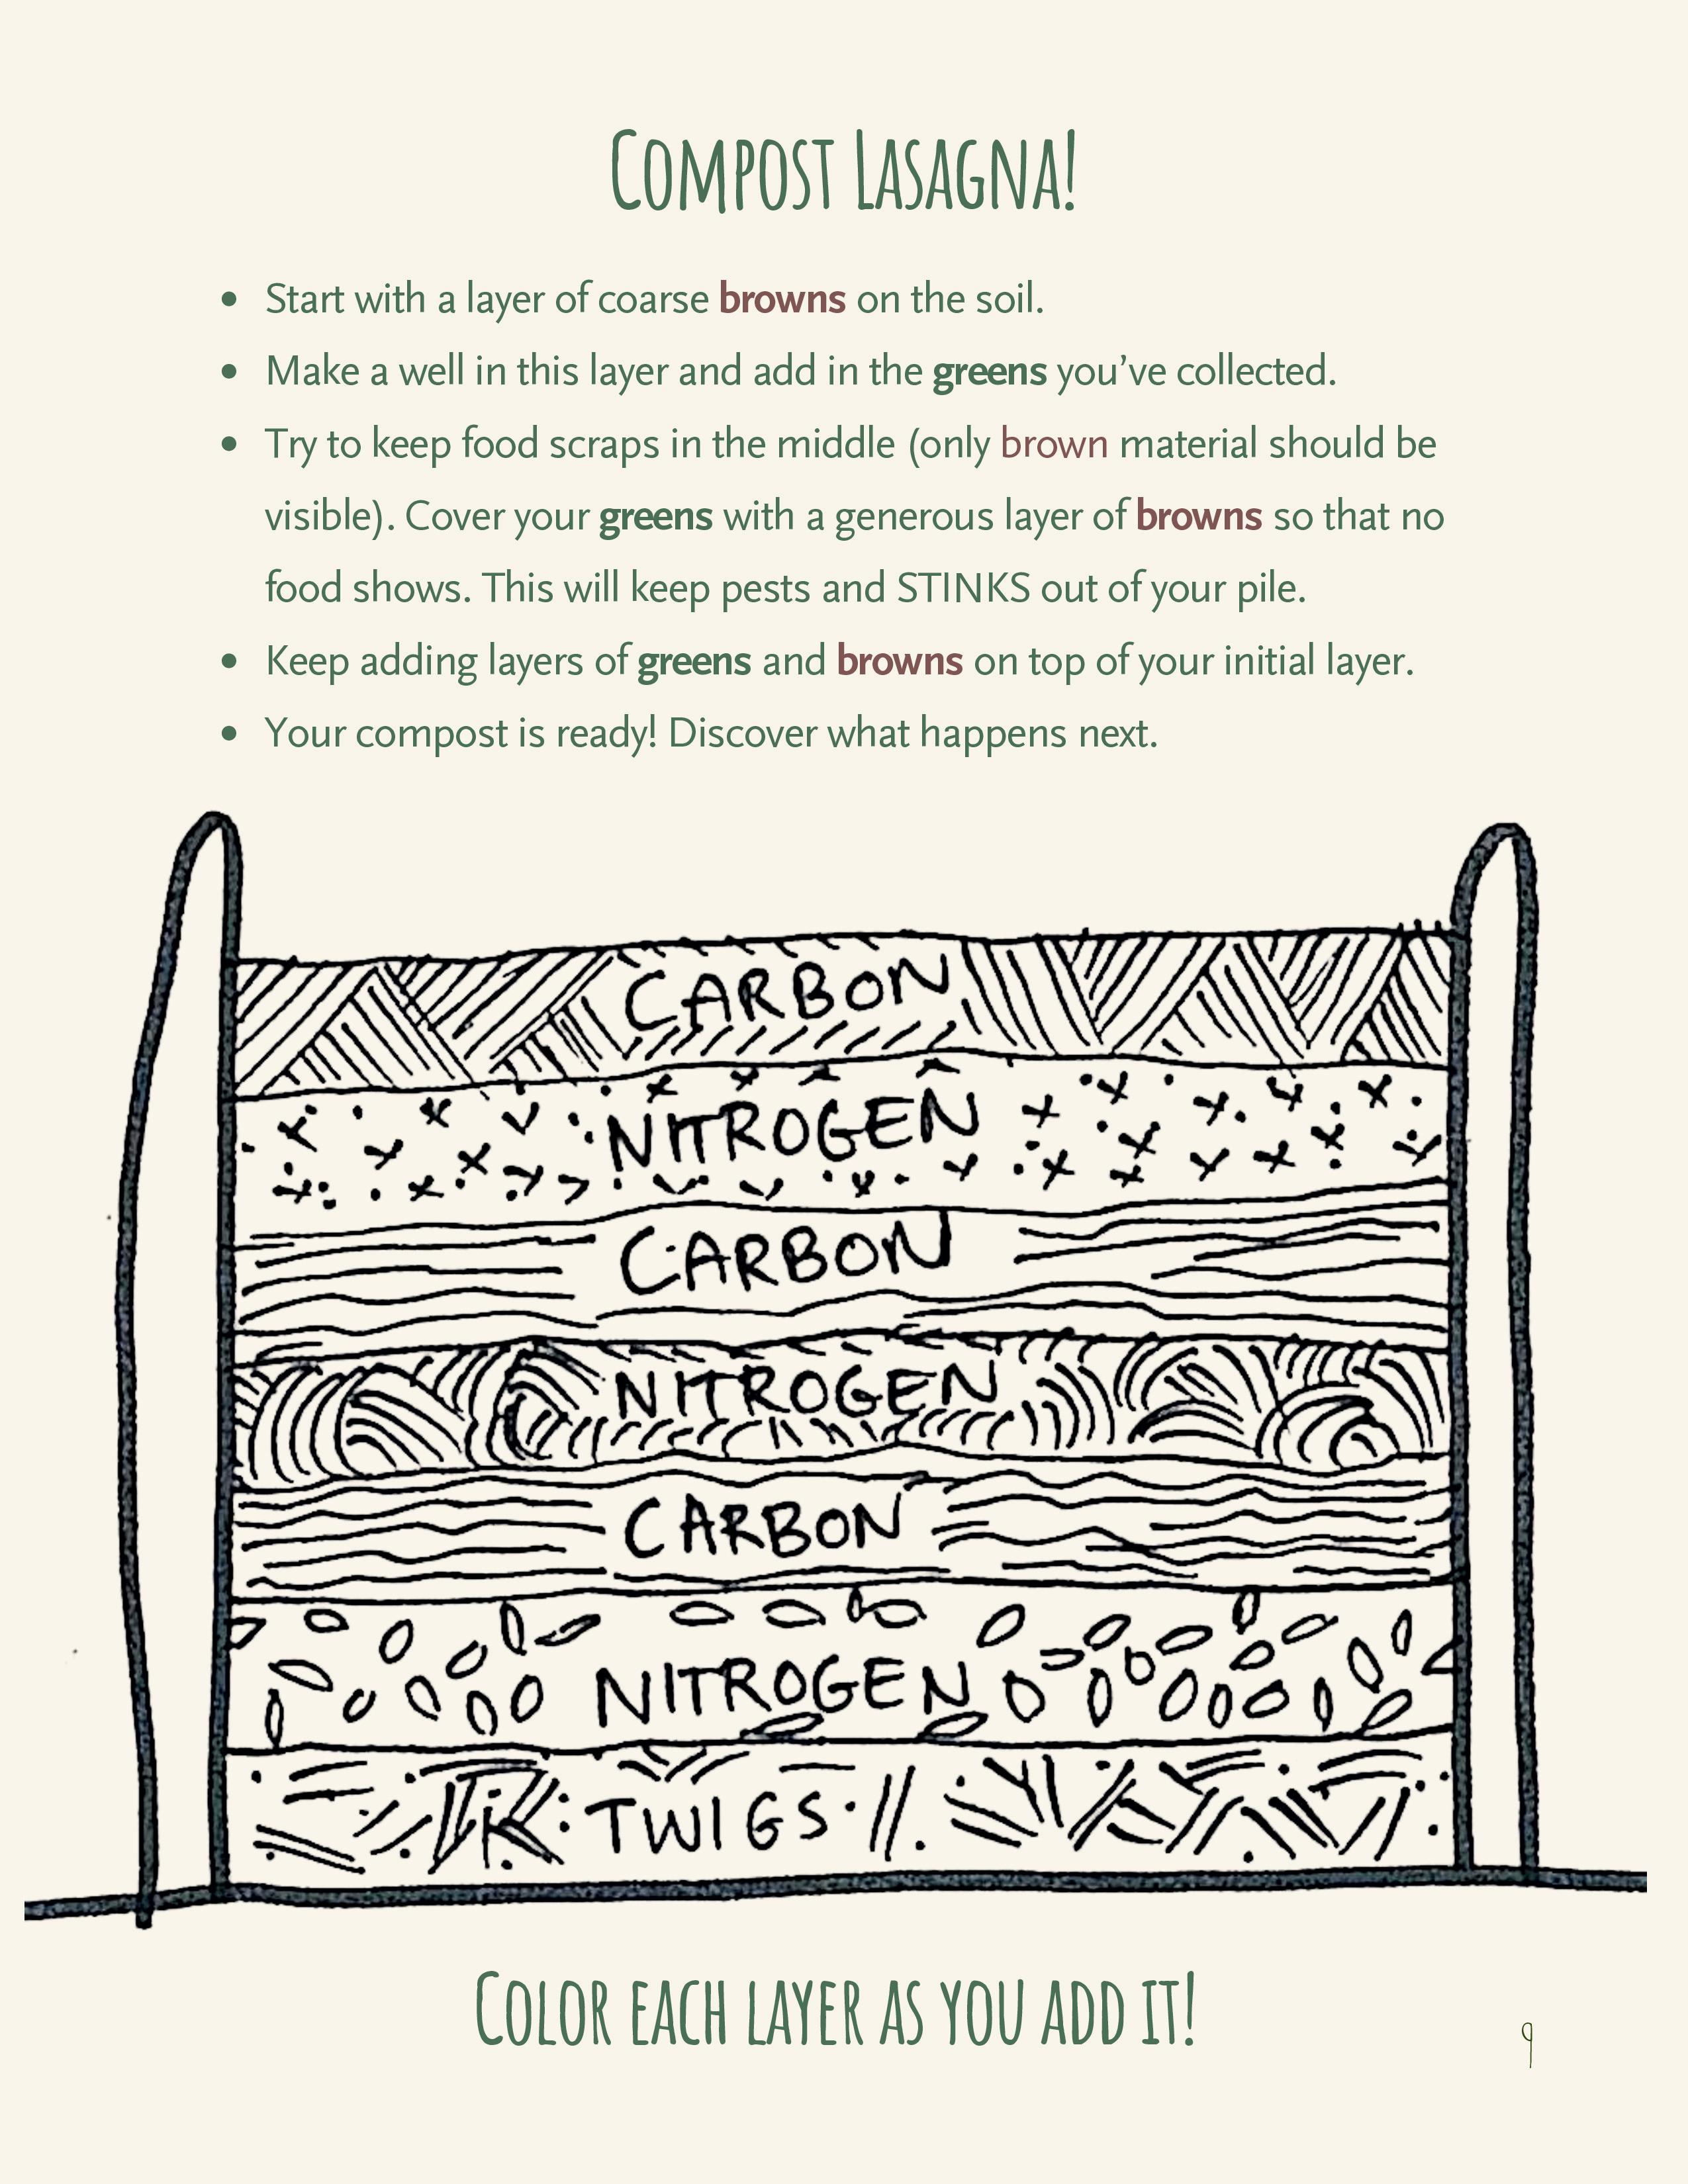 COMPOST LASAGNA!
• Start with a layer of coarse browns on the soil.
• Make a well in this layer and add in the greens you’ve collected.
• Try to keep food scraps in the middle (only brown material should be
visible). Cover your greens with a generous layer of browns so that no
food shows. This will keep pests and STINKS out of your pile.
• Keep adding layers of greens and browns on top of your initial layer.
• Your compost is ready! Discover what happens next.
CARBON
NITROGEN
CARBON
NITROGEN
CARBON
NITROGEN
TWIGS
COLOR EACH LAYER AS YOU ADD IT!
9